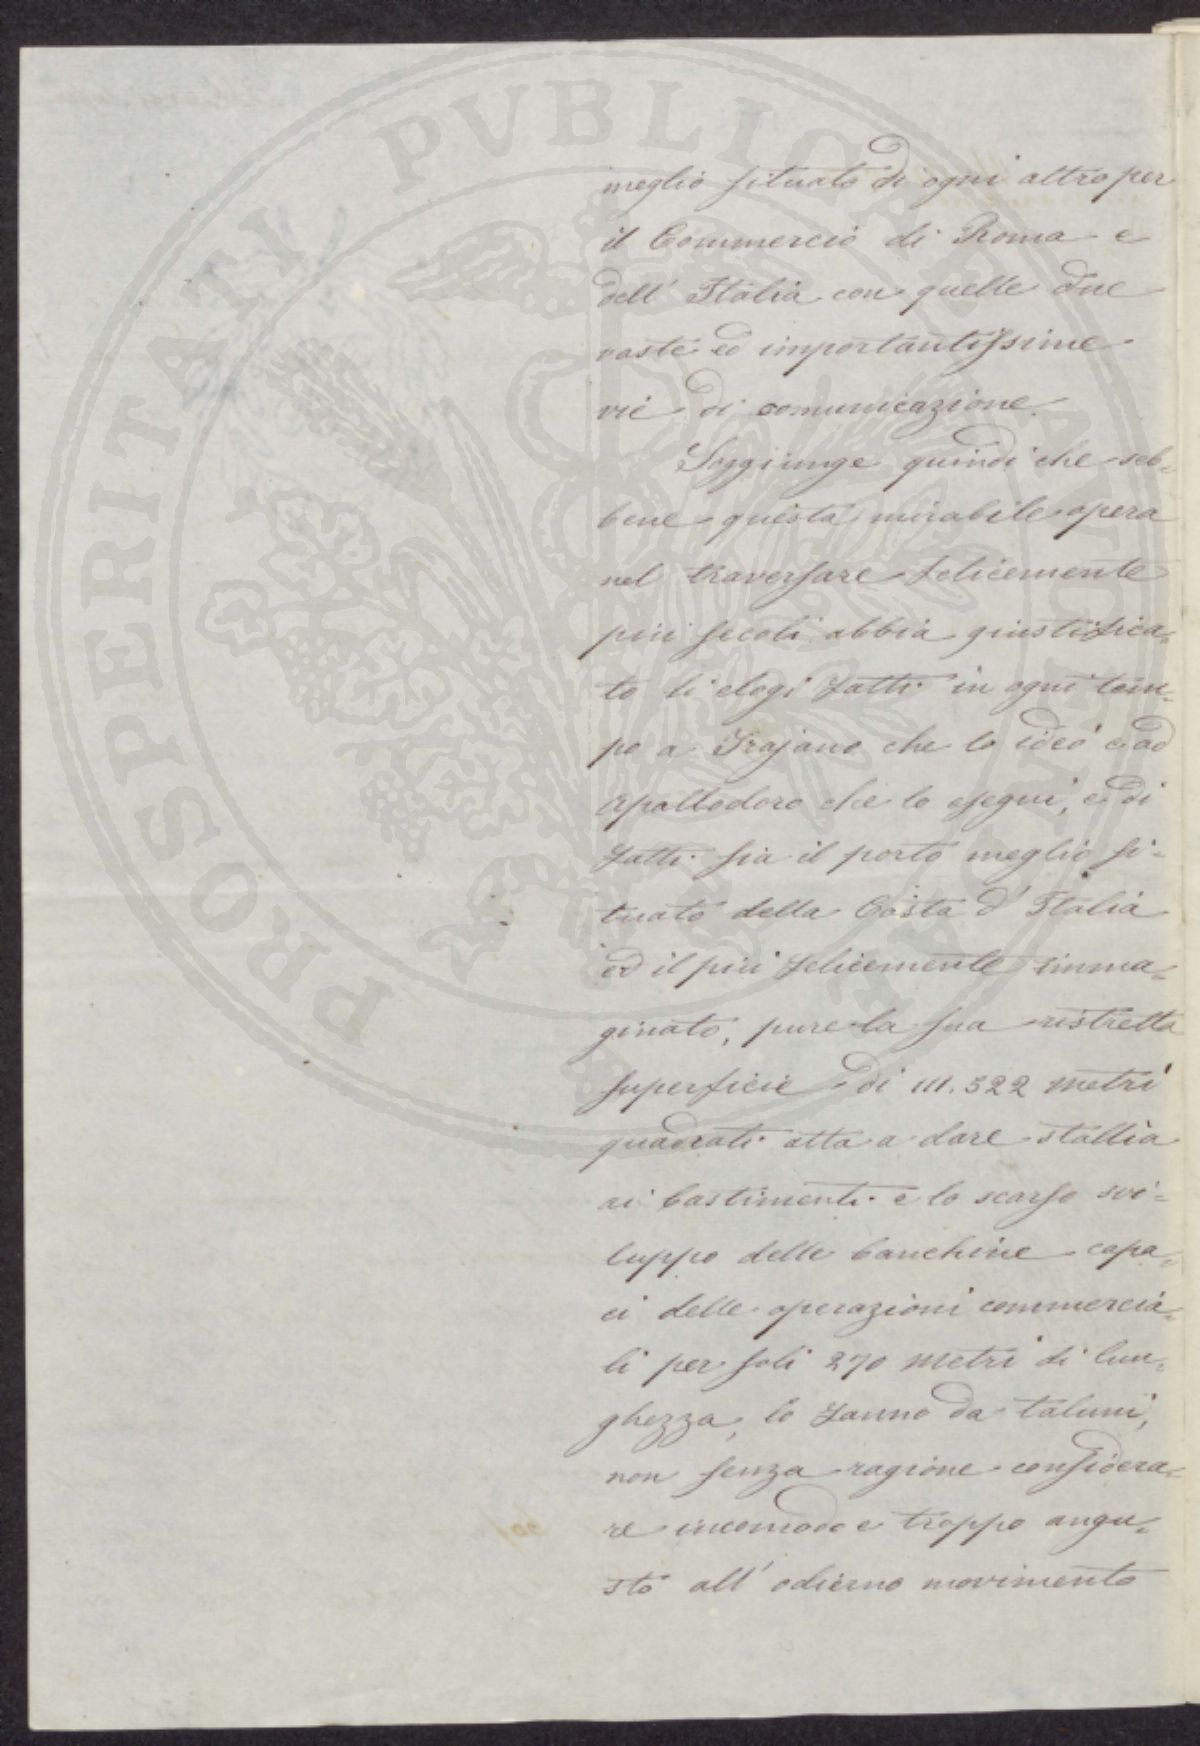 meglio situato di ogni altro per
il Commercio di Roma e
dell' Italia con quelle due
vaste ed importantissime
vie di comunicazione.
Soggiunge quindi che seb-
bene questa mirabile opera
nel traversare felicemente
più secoli abbia giustifica-
to li elogi fatti in ogni tem-
po a Trajano che lo ideò e ad
Apollodoro che lo eseguì, e di
fatti sia il porto meglio si-
tuato della Costa d' Italia
ed il più felicemente imma-
ginato, pure la sua ristretta
superficie di 111.522 metri
quadrati atta a dare stallia
ai bastimenti e lo scarso svi-
luppo delle banchine capa-
ci delle operazioni commercia-
li per soli 270 metri di lun-
ghezza, lo fanno da taluni,
non senza ragione considera-
re incomodo e troppo angu-
sto all' odierno movimento
PROSPERITATI PVBLICAE AVGENDAE